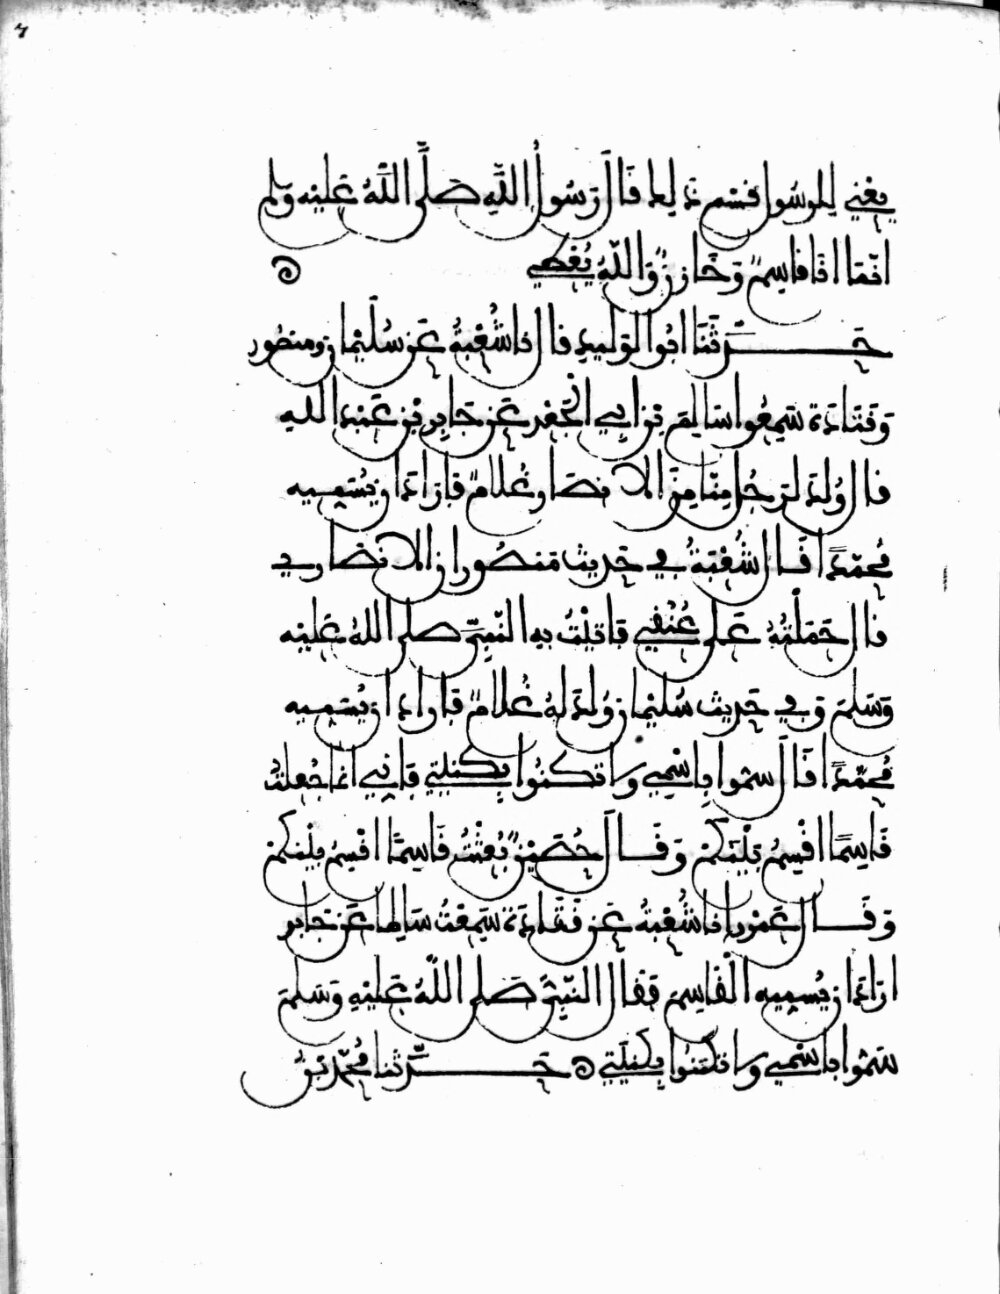 يَعْنِي لِلرَّسُولِ قَسْمَ ذَلِكَ قَالَ رَسُولُ اللَّهِ صَلَّى اللَّهُ عَلَيْهِ وَسَلَّمَ
إِنَّمَا أَنَا قَاسِمٌ وَخَازِنٌ وَاللَّهُ يُعْطِي
حَدَّثَنَا أَبُو الْوَلِيدِ قال نا شُعْبَةُ عَنْ سُلَيْمَانَ وَمَنْصُورٍ
وَقَتَادَةَ سَمِعُوا سَالِمَ بْنَ أَبِي الْجَعْدِ عَنْ جَابِرِ بْنِ عَبْدِ اللَّهِ
قال وُلِدَ لِرَجُلٍ مِنَّا مِنَ الْأَنْصَارِ غُلَامٌ فَأَرَادَ أَنْ يُسَمِّيَهُ
مُحَمَّدًا قَالَ شُعْبَةُ فِي حَدِيثِ مَنْصُورٍ أَنَّ الْأَنْصَارِيَّ
قال حَمَلْتُهُ عَلَى عُنُقِي فَأَتَيْتُ بِهِ النَّبِيَّ صَلَّى اللَّهُ عَلَيْهِ
وَسَلَّمَ وَفِي حَدِيثِ سُلَيْمَانَ وُلِدَ لَهُ غُلَامٌ فَأَرَادَ أَنْ يُسَمِّيَهُ
مُحَمَّدًا قَالَ سَمُّوا بِاسْمِي وَلَا تَكَنَّوْا بِكُنْيَتِي فَإِنِّي إنما جُعِلْتُ
قَاسِمًا أَقْسِمُ بَيْنَكُمْ وَقَالَ حُصَيْنٌ بُعِثْتُ قَاسِمًا أَقْسِمُ بَيْنَكُمْ
وَقَالَ عَمْرٌو أنا شُعْبَةُ عَنْ قَتَادَةَ سَمِعْتُ سَالِمًا عَنْ جَابِرٍ
أَرَادَ أَنْ يُسَمِّيَهُ الْقَاسِمَ فَقَالَ النَّبِيُّ صَلَّى اللَّهُ عَلَيْهِ وَسَلَّمَ
سَمُّوا بِاسْمِي وَلَا تَكْتَنُوا بِكُنْيَتِي حَدَّثَنَا مُحَمَّدُ بْنُ